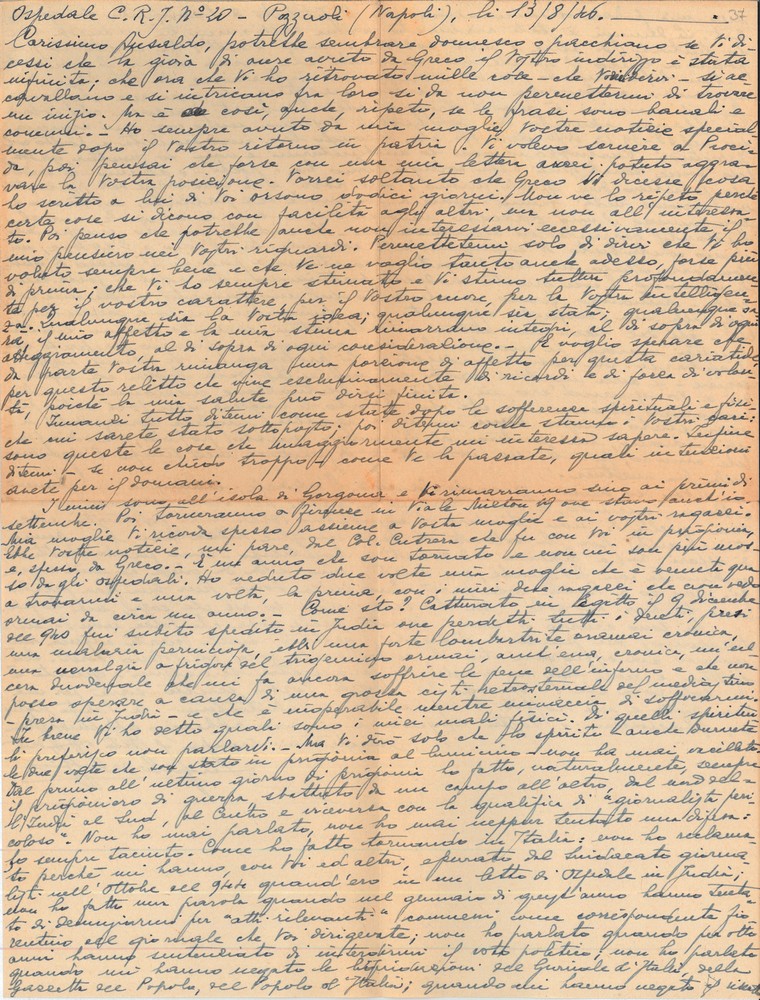 Ospedale C.R.I. Nº 20 - Pozzuoli (Napoli), li 13/8/46. 37
Carissimo Ansaldo, potrebbe sembrare donnesco o pacchiano se Vi di-
cessi che la gioia di aver avuto da Greco il Vostro indirizzo è stata
infinita; che ora che Vi ho ritrovato mille cose - che Vorrei dirvi - si ac
cavallano e si intricano fra loro sì da non permettermi di trovare
un inizio. Ma è così, anche, ripeto, se le frasi sono banali e
comuni. - Ho sempre avuto da mia moglie Vostre notizie special
mente dopo il Vostro ritorno in patria. Vi volevo scrivere a Proci
da, poi pensai che forse con una mia lettera avrei potuto aggra-
vare la Vostra posizione. Vorrei soltanto che Greco Vi dicesse cosa
ho scritto a lui di Voi orsono dodici giorni. Non ve lo ripeto perchè
certe cose si dicono con facilità agli altri, ma non all'interessa-
to. Poi penso che potrebbe anche non interessarvi eccessivamente il
mio pensiero nei Vostri riguardi. Permettetemi solo di dirvi che Vi ho
voluto sempre bene e che Ve ne voglio tanto anche adesso, forse più
di prima; che Vi ho sempre stimato e Vi stimo tuttora profondamen-
te per il vostro carattere, per il Vostro cuore, per la Vostra intelligen-
za. Qualunque sia la Vostra idea; qualunque sia stata; qualunque sa-
rà, il mio affetto e la mia stima rimarranno integri, al di sopra di ogni
atteggiamento, al di sopra di ogni considerazione. - E voglio sperare che
da parte Vostra rimanga una porzione di affetto per questa cariatide,
per questo relitto che vive esclusivamente di ricordi e di forza di volon-
tà, poichè la mia salute può dirsi finita.
Innanzi tutto ditemi come state dopo le sofferenze spirituali e fisi-
che cui sarete stato sottoposto; poi ditemi come stanno i Vostri cari:
sono queste le cose che maggiormente mi interessa sapere. Infine
ditemi - se non chiedo troppo - come Ve la passate, quali intenzioni
avete per il domani.
I miei sono all'isola di Gorgona e Vi rimarranno sino ai primi di
settembre. Poi torneranno a Firenze in Viale Milton 49 ove stavo anch'io.
Mia moglie Vi ricorda spesso assieme a Vostra moglie e ai vostri ragazzi.
Ebbe Vostre notizie, mi pare, dal Col. che fu con Voi in prigionia,
e, spesso, da Greco. - È un anno che son tornato e non mi son più mos-
so dagli ospedali. Ho veduto due volte mia moglie che è venuta qua
a trovarmi e una volta, la prima, con i miei due ragazzi che non vedo
ormai da circa un anno. - Come sto? Catturato in Egitto il 9 dicembre
del 940 fui subito spedito in India ove perdetti tutti i denti, presi
una malaria perniciosa, ebbi una forte lombartrite oramai cronica,
una nevralgia a frigore del trigemino ormai, anch'essa, cronica, un'ul-
cera duodenale che mi fa ancora soffrire le pene dell'inferno e che non
posso sperare a causa di una grossa cisti retrosternale del mediastino
- presa in India - e che è inoperabile mentre minaccia di soffocarmi.
In breve Vi ho detto quali sono i miei mali fisici. Di quelli spiritua
li preferisco non parlarvi. - Ma Vi dirò solo che lo spirito - anche durante
le due volte che son stato in prigionia al lumicino - non ha mai vacillato.
Dal primo all'ultimo giorno di prigionia ho fatto, naturalmente, sempre
il prigioniero di guerra sbattuto da un campo all'altro, dal nord del-
l'India al Sud, al Centro e viceversa con la qualifica di "giornalista peri-
coloso". Non ho mai parlato, non ho mai neppur tentato una difesa:
ho sempre taciuto. Come ho fatto tornando in Italia: non ho reclama-
to perchè mi hanno, con Voi ed altri, epurato dal Sindacato giorna-
listi nell'Ottobre del 944 quand'ero in un letto di Ospedale in India;
non ho fatto una parola quando nel gennaio di quest'anno hanno tenta-
to di denunciarmi per "atti rilevanti" commessi come corrispondente fio
rentino del giornale che Voi dirigevate; non ho parlato quando per otto
anni hanno sentenziato di interdirmi il voto politico; non ho parlato
quando mi hanno negato le liquidazioni del Giornale d'Italia, della
Gazzetta del Popolo, del Popolo d'Italia; quando mi hanno negato